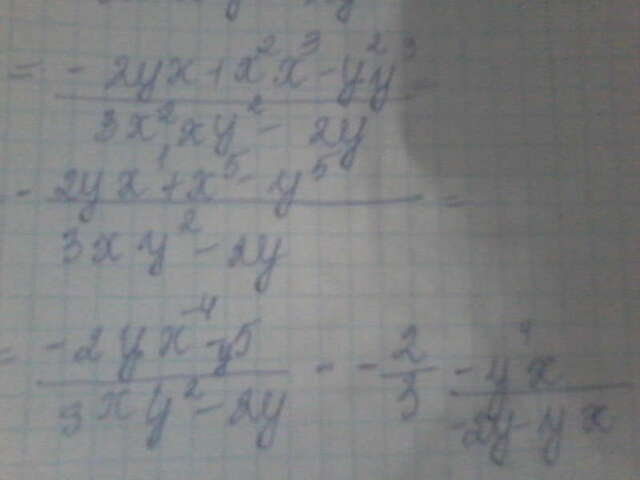 = -2yx + x²x³ - y²y³
3x²xy² - 2y
- 2yx¹ + x⁵ - y⁵ =
3xy² - 2y
= -2yx⁻⁴ - y5 - - 2 - y⁴x
3xy² - 2y 3 -2y - yx